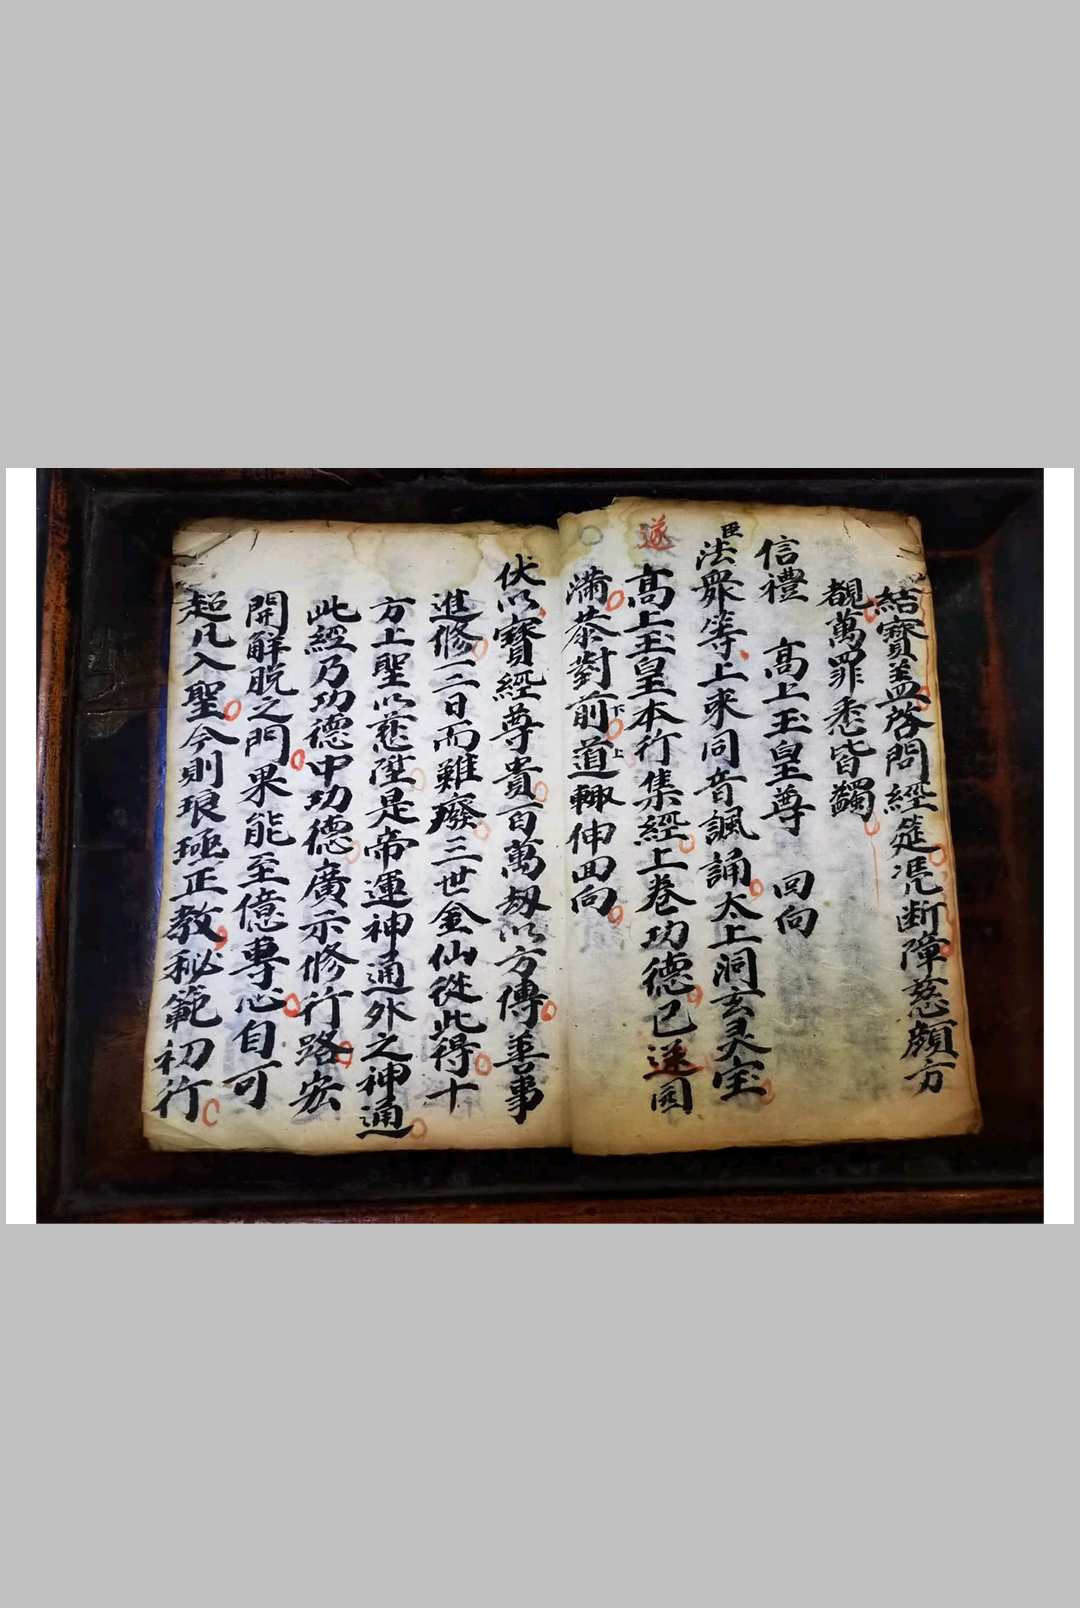 結寳盖啓問經筵凴断障慈顔方
覩萬罪悉皆蠲
信禮 高上玉皇尊 回向
臣法衆等上来同音諷誦太上洞玄灵宝
高上玉皇本行集經上巻功德已遂圓
遂
滿恭對前下道上輙伸回向
伏以寳經尊貴百萬刼以方傳善事
進修一二日而難癈三世金仙従此得十
方上聖以茲陞是帝運神通外之神通
此經乃功德中功德廣示修行路宏
開解脱之門果能至億專心自可
超凡入聖今則琅凾正教秘範初行